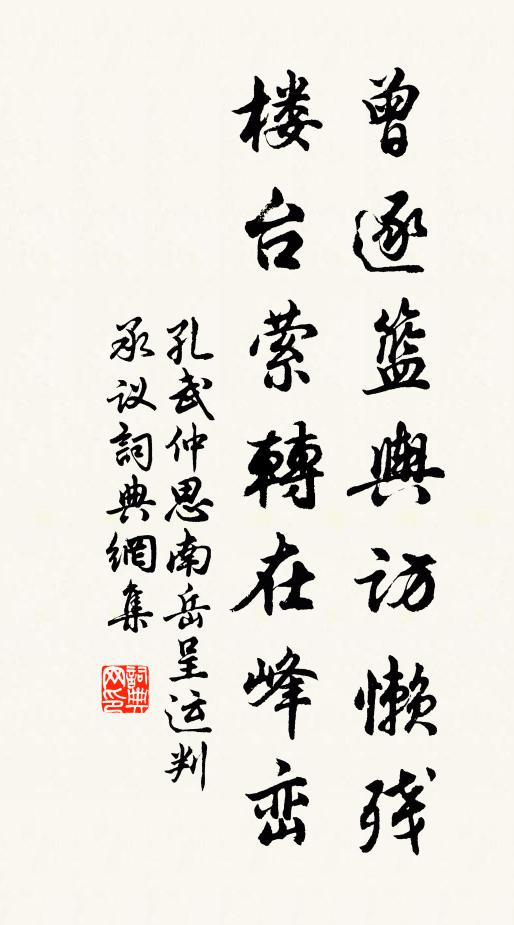 曾逐篮舆访懒残
楼台萦转在峰峦
孔武仲思南岳呈运判
承议詞典網集
詞典网印